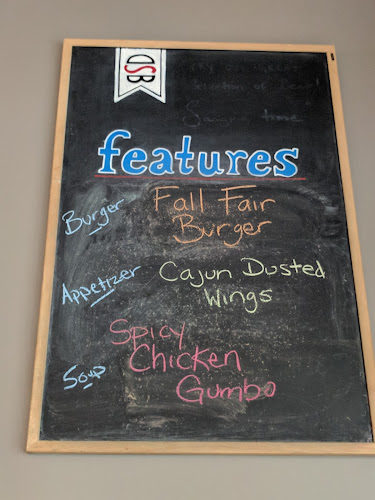 DSB
features
Burger Fall Fair
Burger
Appetizer Cajun Dusted
Wings
Spicy
Soup Chicken
Gumbo